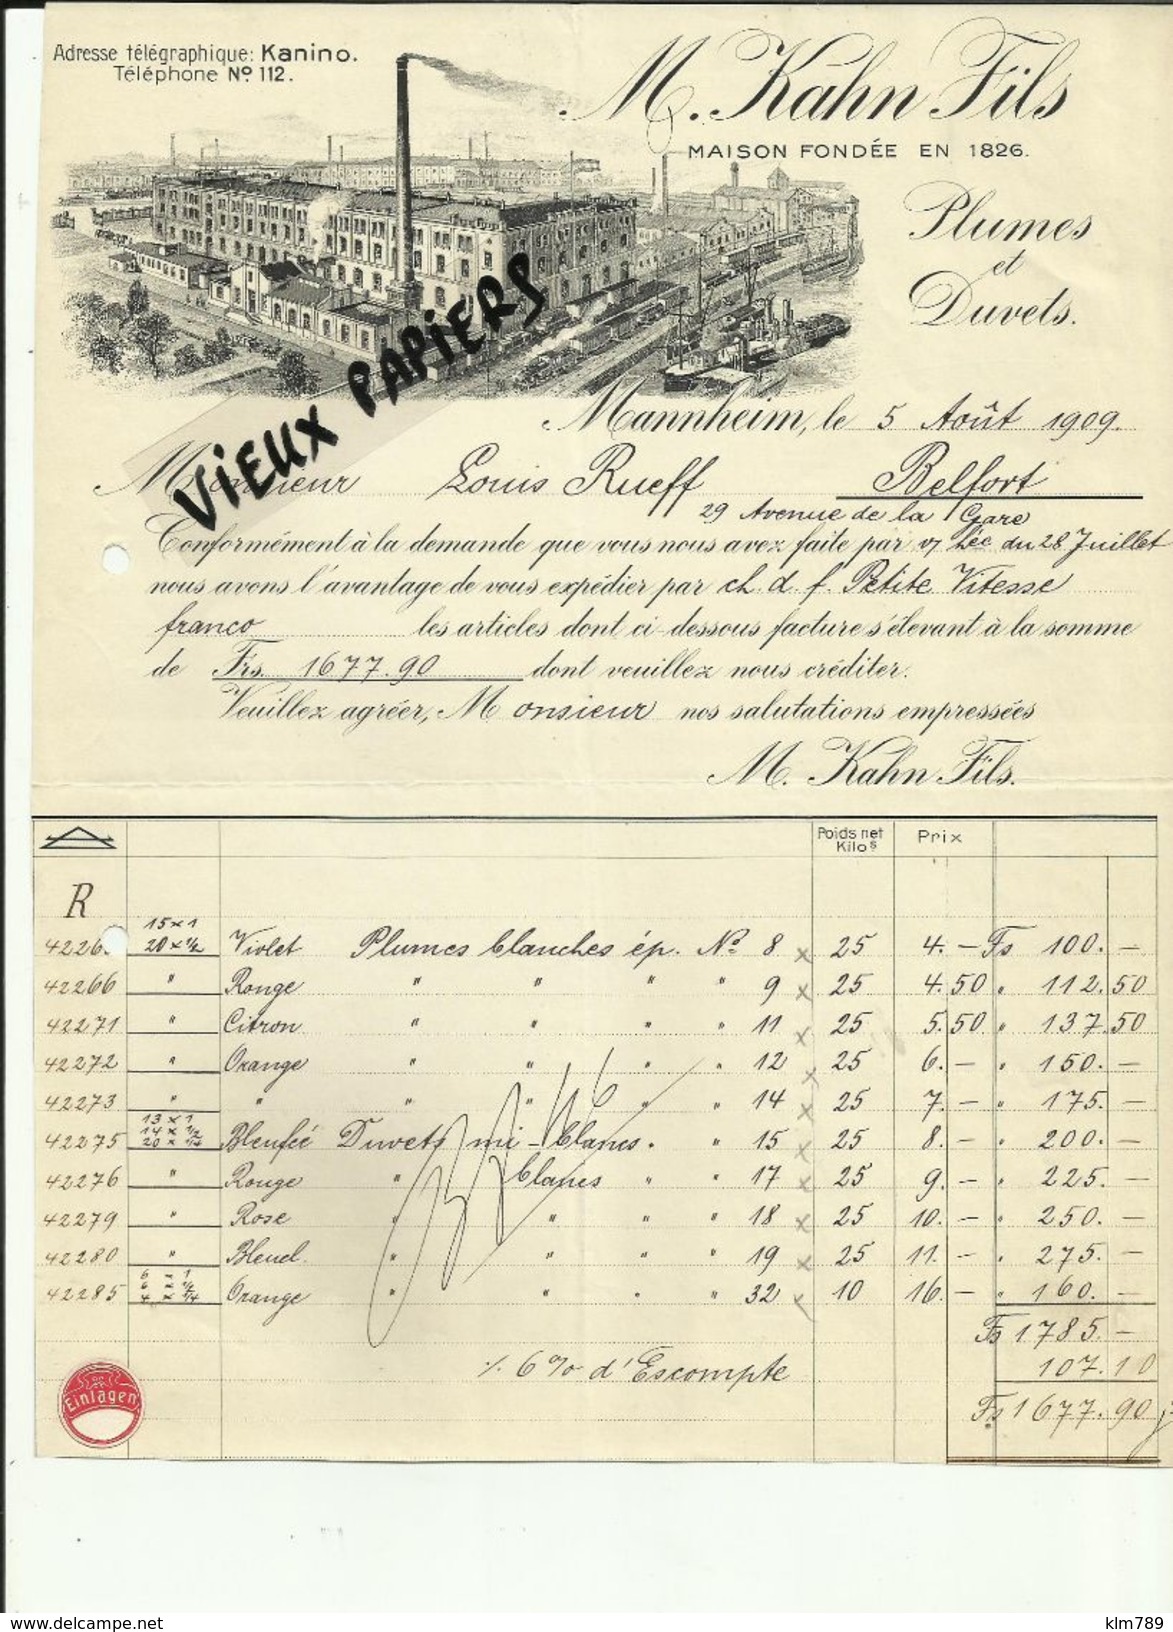 Adresse télégraphique: Kanino.
Téléphone Nº 112.
M. Kahn Fils
MAISON FONDÉE EN 1826.
Plumes
et
Duvets.
VIEUX PAPIERS
Mannheim, le 5 Août 1909.
Monsieur Louis Rueff Belfort
29 Avenue de la Gare
Conformément à la demande que vous nous avez faite par du 28 Juillet
nous avons l'avantage de vous expédier par ch. d. f. Petite Vitesse
franco les articles dont ci-dessous facture s'élevant à la somme
de Frs. 1677.90 dont veuillez nous créditer.
Veuillez agréer, Monsieur nos salutations empressées
M. Kahn Fils.
Poids net Prix
Kilos
R
15 x 1
4226 20 x 1/2 Violet Plumes blanches ép. Nº 8 x 25 4. — Fs 100. —
42266 " Rouge " " " " 9 x 25 4.50 " 112.50
42271 " Citron " " " " 11 x 25 5.50 " 137.50
42272 " Orange " " " " 12 x 25 6. — " 150. —
42273 " " " " " " 14 x 25 7. — " 175. —
13 x 1
14 x 1/2
42275 20 x 1/4 Duvets mi-blancs. " 15 x 25 8. — " 200. —
42276 " Rouge " blancs " " 17 x 25 9. — " 225. —
42279 " Rose " " " " 18 x 25 10. — " 250. —
42280 " " " " " 19 x 25 11. — " 275. —
6 x 1
6 x 1/2
42285 4 x 1/4 Orange " " " " 32 x 10 16. — " 160. —
Fs 1785. —
./. 6% d'Escompte 107.10
Fs 1677.90
Einlagen
delcampe.net
klm789